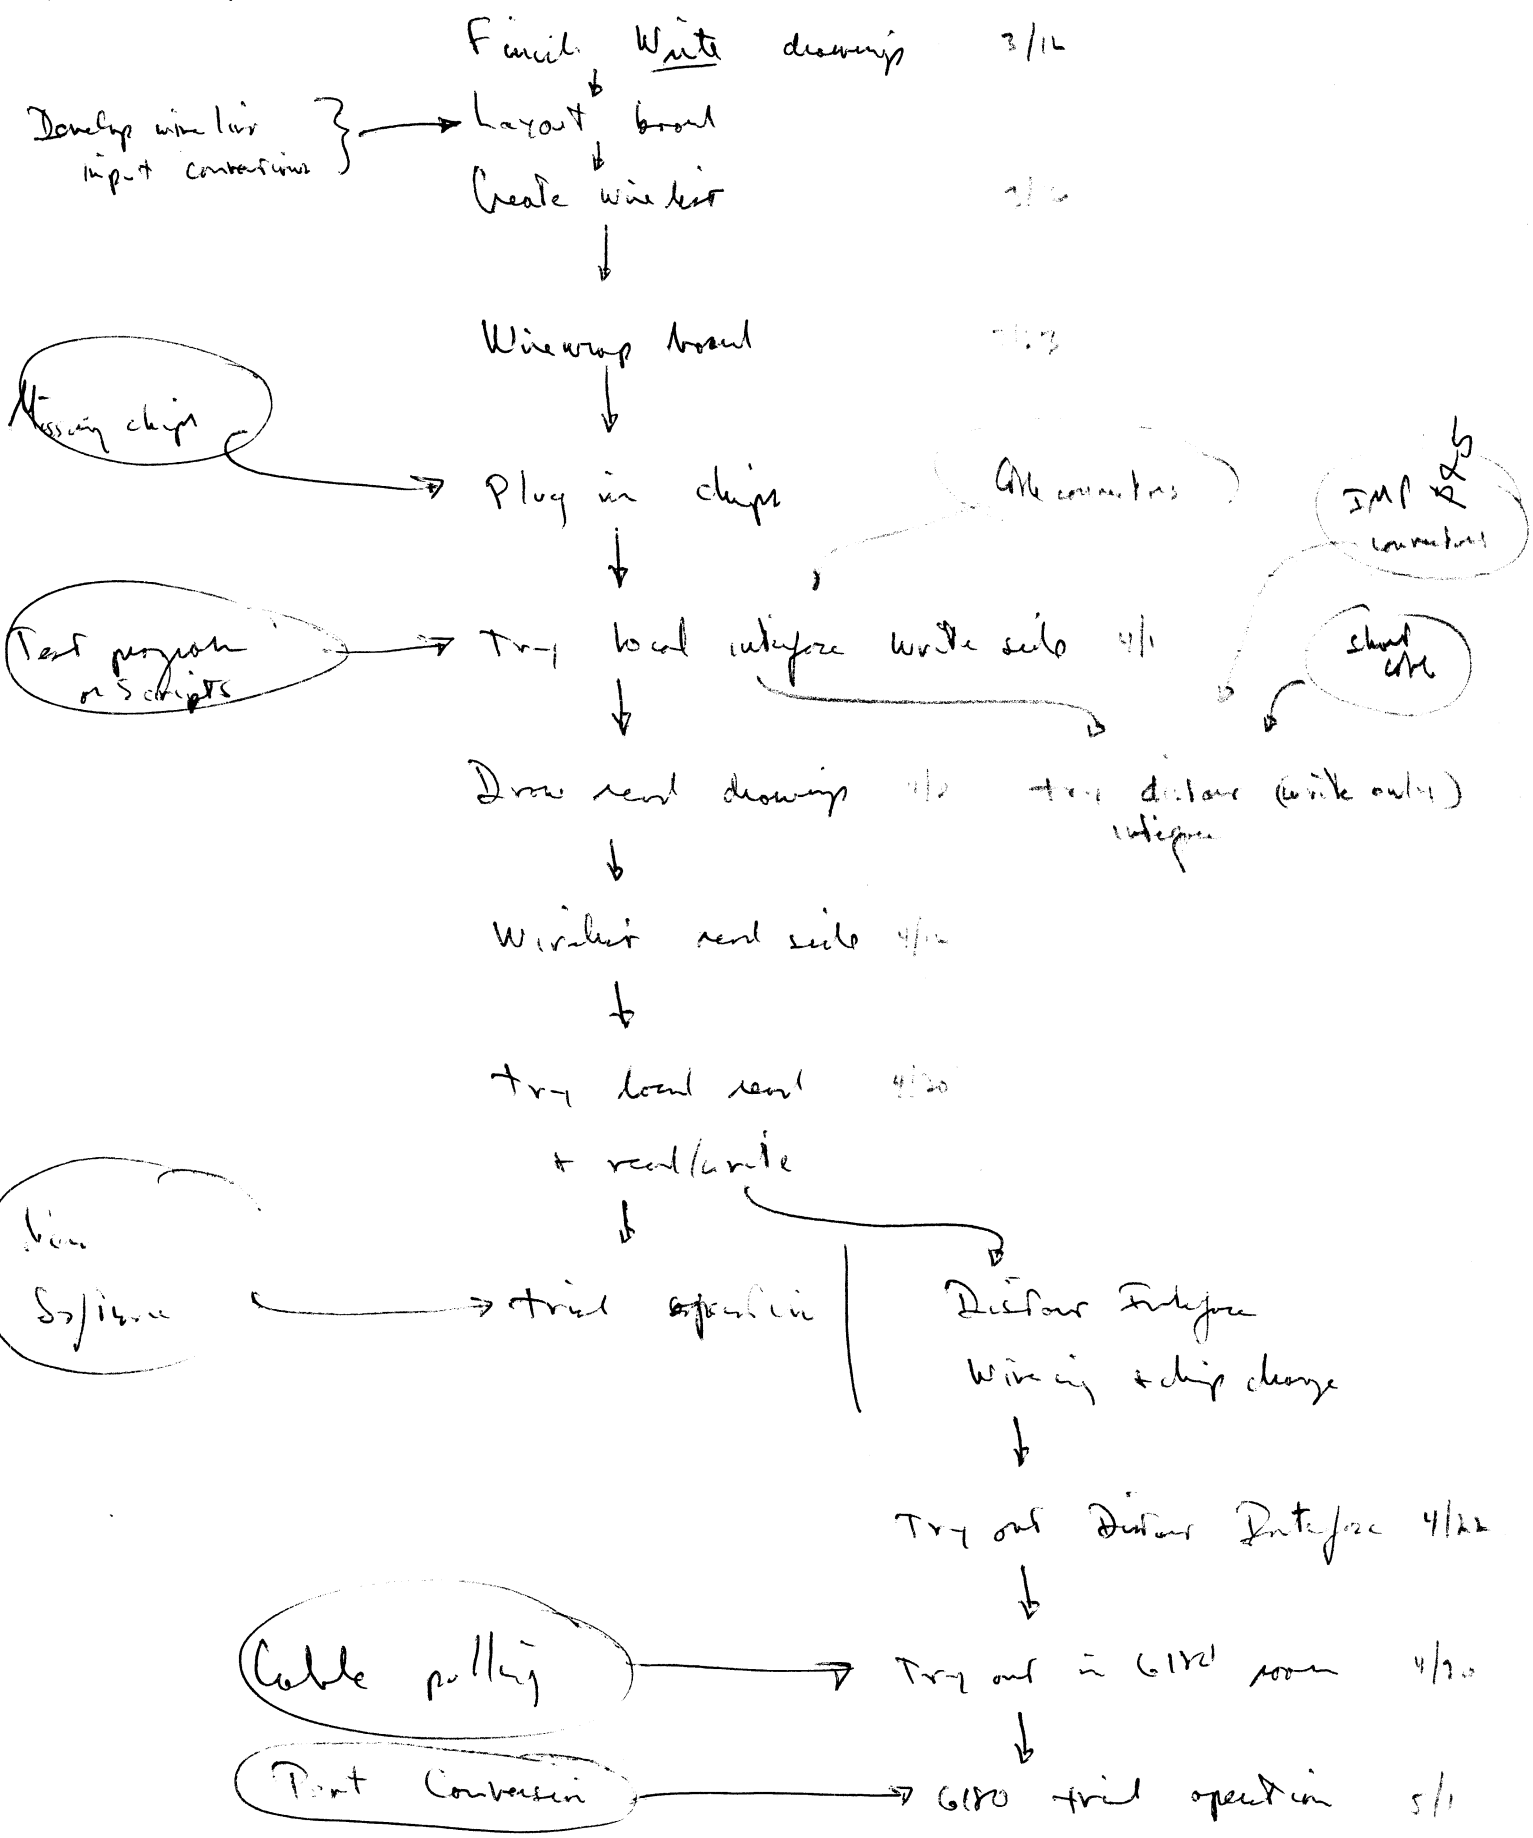 Finish Write drawings 3/12
Develop wire list
input conventions
Layout board
Create wire list
Wirewrap board
Missing chips
Plug in chips
Cable connectors
IMP
connectors
Test program
or Scripts
Try local interface write side 4/1
short
cable
Draw read drawings
try distant (write only)
interface
Wirelist read side
try local read 4/20
+ read/write
Software
trial operation
Distant Interface
Wiring + chip change
Try out Distant Interface 4/22
Cable pulling
Try out in 6180 room 4/30
Port Conversion
6180 trial operation 5/1